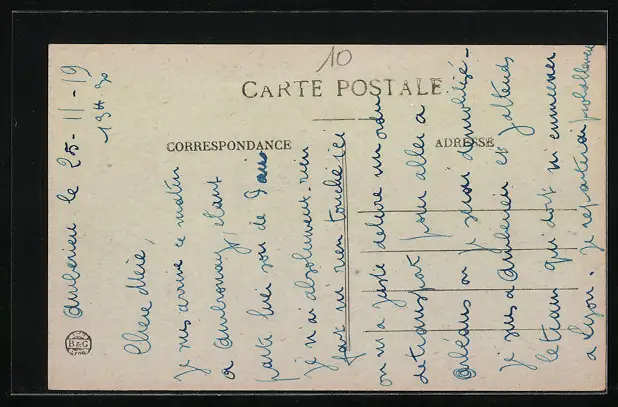 10
CARTE POSTALE
CORRESPONDANCE
ADRESSE
B&G
Lyon
Ambérieu le 25-11-19
13H30
Chere Mère,
Je suis arrivé ce matin
a Ambronay, étant
parti hier soir de
Je n'ai absolument rien
fait ni rien touché ici
on m'a juste délivré un ordre
de transport pour aller a
Orléans ou je serai démobilisé-
Je suis a Ambérieu et j'attends
le train qui doit m'emmener
a Lyon. Je repartirai probablement